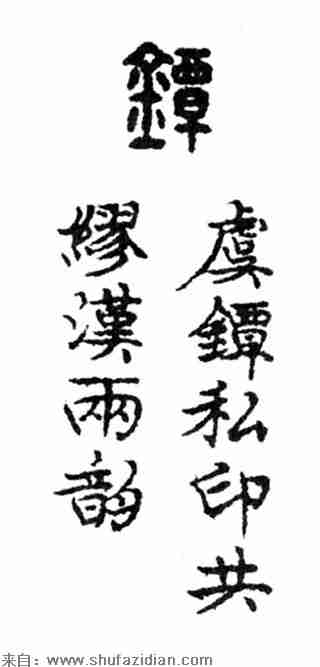 鐔
虞鐔私印共
繆漢兩韵
来自：www.shufazidian.com